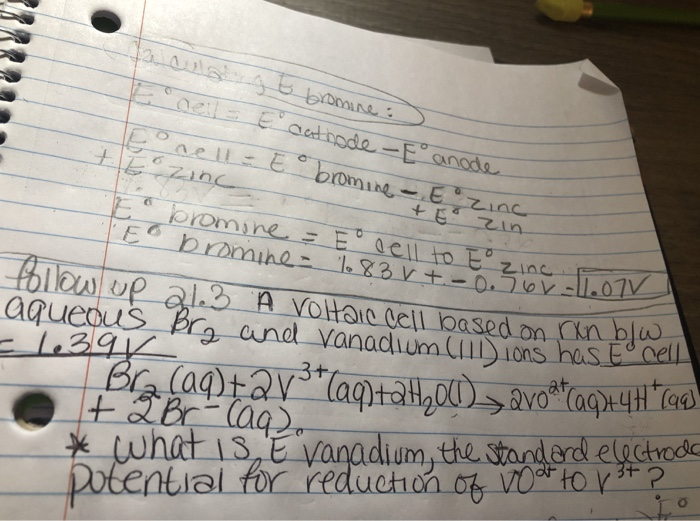 Calculating E bromine:
E° cell = E° cathode - E° anode
E° cell = E° bromine - E° zinc
+ E° zinc + E° zin
E° bromine = E° cell to E° zinc
E° bromine = 1.83 V + - 0.76V = 1.07V
follow up 21.3 A voltaic cell based on rxn b/w
aqueous Br₂ and vanadium (III) ions has E° cell
= 1.39V
Br₂ (aq) + 2V³⁺ (aq) + 2H₂O(l) → 2VO²⁺ (aq) + 4H⁺ (aq)
+ 2Br⁻ (aq).
* What is E° vanadium, the standard electrode
potential for reduction of VO²⁺ to V³⁺?